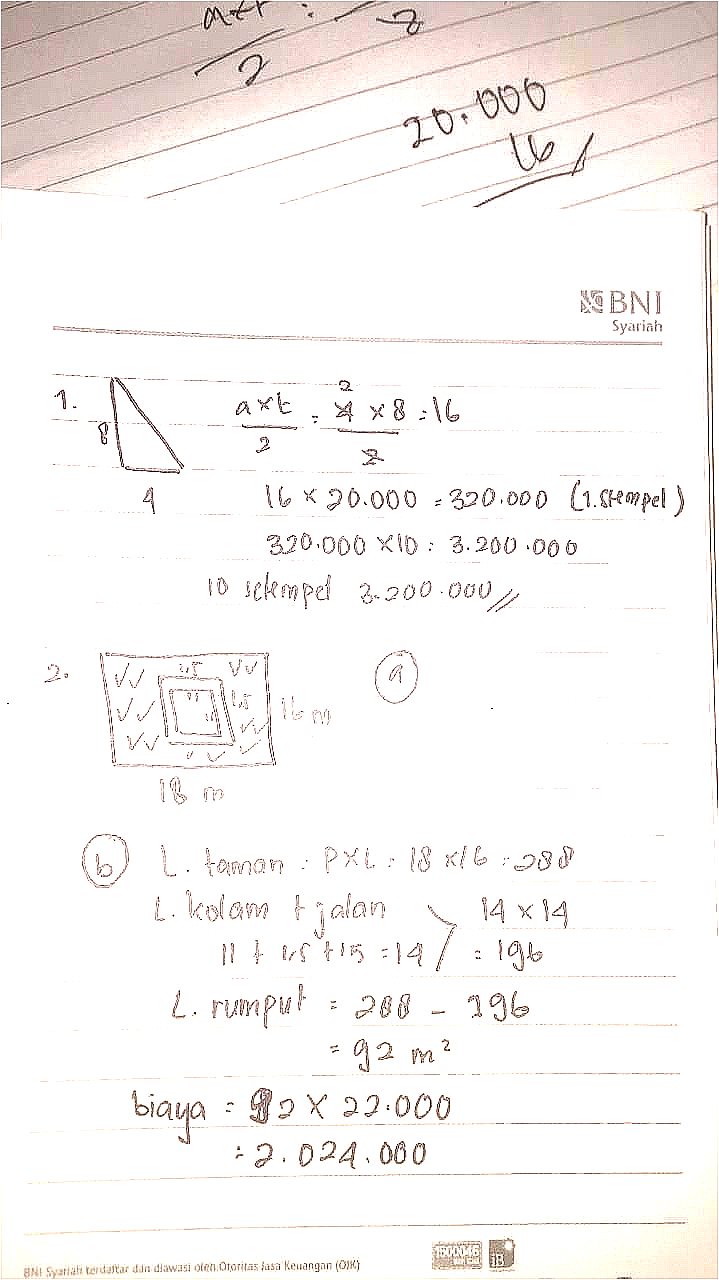 a×t :
2 2
20.000
16
BNI
Syariah
1. 8 4
a×t = 4 × 8 = 16
2 2
2
16 × 20.000 = 320.000 (1.stempel)
320.000 × 10 : 3.200.000
10 setempel 3.200.000 //
2. 1,5 11 11 1,5 16 m
18 m
a
b L. taman : P×L : 18 × 16 = 288
L. kolam + jalan 14 × 14
11 + 1,5 + 1,5 = 14 = 196
L. rumput = 288 - 196
= 92 m²
biaya = 92 × 22.000
= 2.024.000
BNI Syariah terdaftar dan diawasi oleh Otoritas Jasa Keuangan (OJK)
1500046
iB